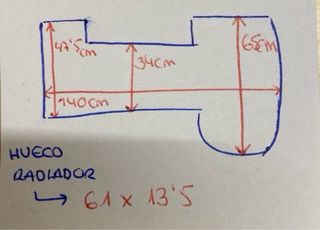 47'5cm
34cm
65cm
140cm
HUECO
RADIADOR
61 x 13'5